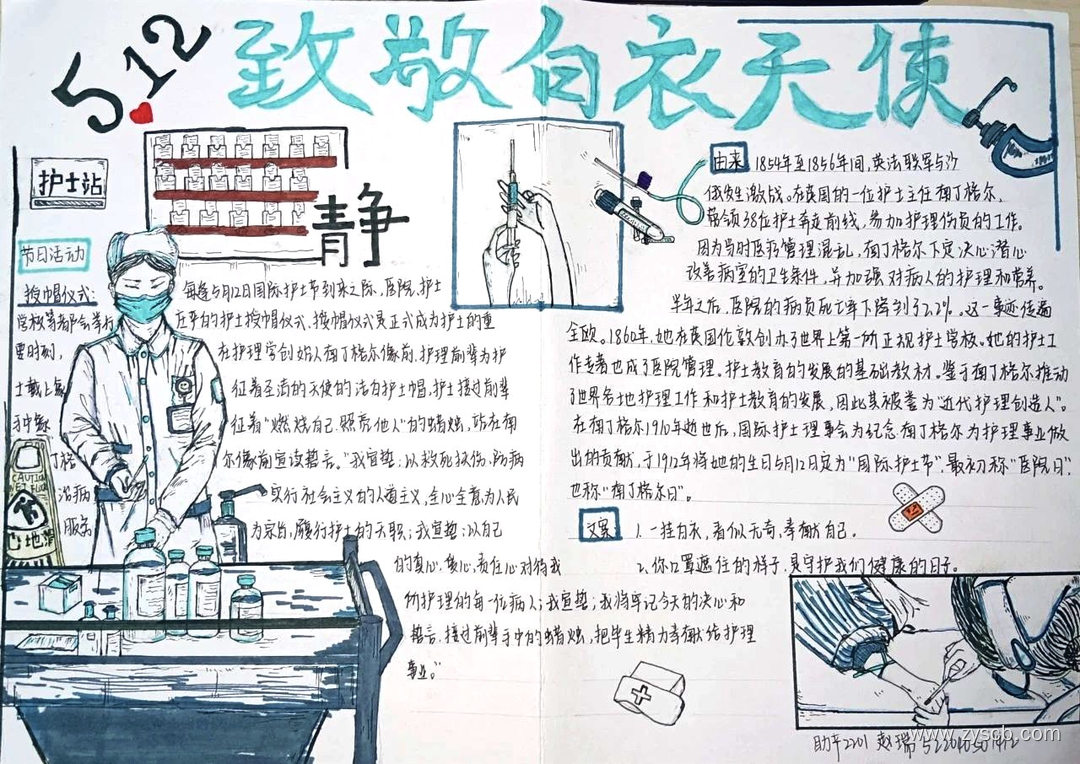 5.12
致敬白衣天使
护士站
静
节日活动
授帽仪式:
每逢5月12日国际护士节到来之际,医院、护士
学校等都会举行庄重的护士授帽仪式。授帽仪式是正式成为护士的重
要时刻,在护理学创始人南丁格尔像前,护理前辈为护
士戴上象征着圣洁的天使的洁白护士帽,护士接过前辈
手中象征着“燃烧自己、照亮他人”的蜡烛,站在南
丁格尔像前宣读誓言。“我宣誓:以救死扶伤、防病
治病实行社会主义的人道主义,全心全意为人民
服务为宗旨,履行护士的天职;我宣誓:以自己
的真心、爱心、责任心对待我
所护理的每一位病人;我宣誓:我将牢记今天的决心和
誓言,接过前辈手中的蜡烛,把毕生精力奉献给护理
事业。”
CAUTION
WET FLOOR
心地滑
由来
1854年至1856年间,英法联军与沙
俄发生激战。在英国的一位护士主任南丁格尔,
带领38位护士奔走前线,参加护理伤员的工作。
因为当时医疗管理混乱,南丁格尔下定决心潜心
改善病室的卫生条件,并加强对病人的护理和营养。
半年之后,医院的病员死亡率下降到了2.2%。这一事迹传遍
全欧。1860年,她在英国伦敦创办了世界上第一所正规护士学校。她的护士工
作专著也成了医院管理、护士教育的发展的基础教材。鉴于南丁格尔推动
了世界各地护理工作和护士教育的发展,因此其被誉为“近代护理创造人”。
在南丁格尔1910年逝世后,国际护士理事会为纪念南丁格尔为护理事业做
出的贡献,于1912年将她的生日5月12日定为“国际护士节”,最初称“医院日”,
也称“南丁格尔日”。
文案
1.一挂白衣,看似无奇,奉献自己。
2.你口罩遮住的样子,是守护我们健康的日子。
助产2201 赵瑞
www.zyscb.com